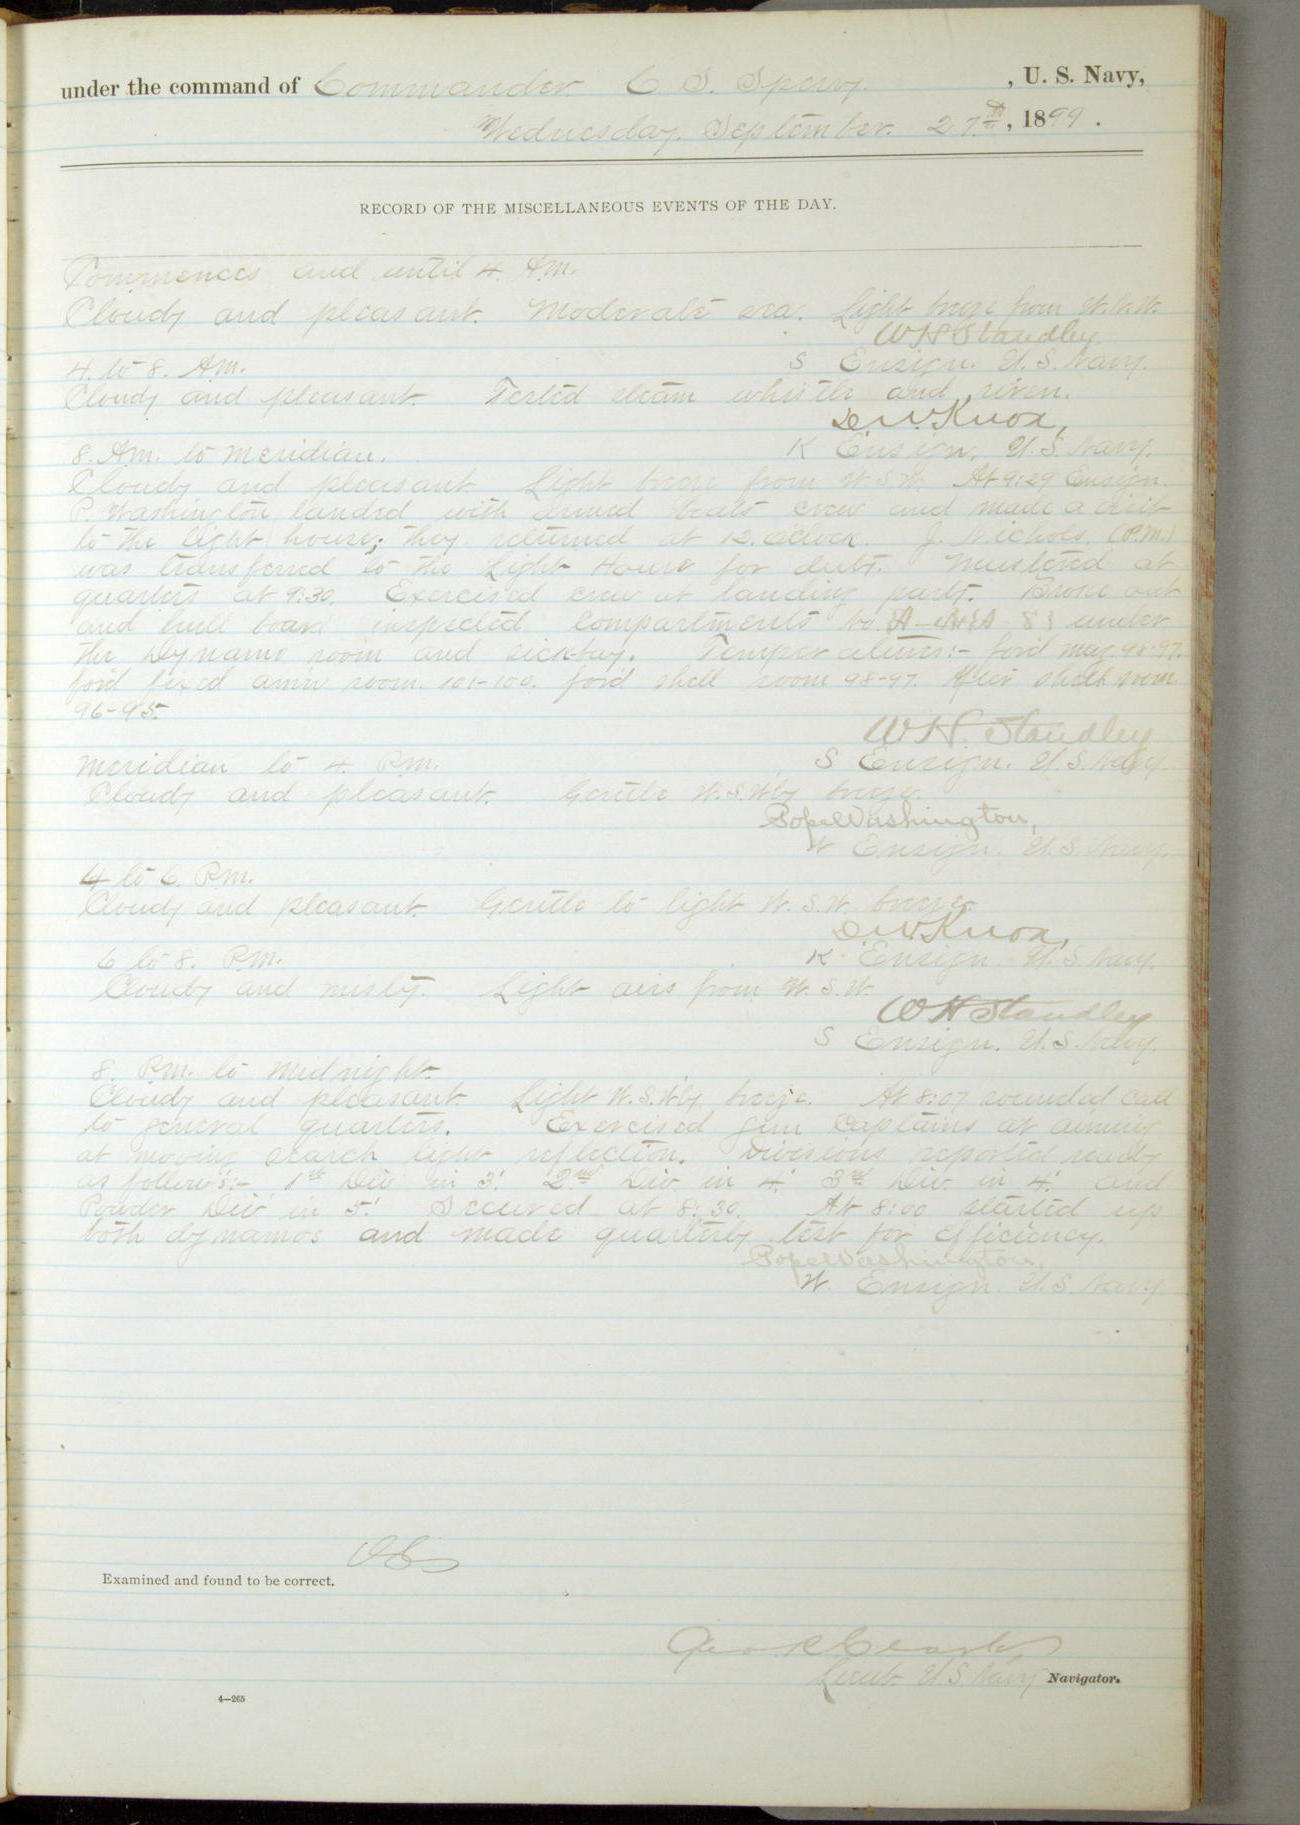 under the command of Commander C S. Sperry , U. S. Navy,
Wednesday, September. 27th, 1899.
RECORD OF THE MISCELLANEOUS EVENTS OF THE DAY.
Commences and until 4 A.M.
Cloudy and pleasant. Moderate sea. Light breeze from W.
WHStandley
S Ensign. U.S. Navy.
4. to 8. A.M.
Cloudy and pleasant. Tested steam whistle and siren.
D.W.Knox,
K Ensign. U.S. Navy.
8. A.M. to meridian.
Cloudy and pleasant. Light breeze from W.S.W. At 9:29 Ensign
P. Washington landed with armed boats crew and made a visit
to the light house; they returned at 12. o'clock. J. Nichols, (P.M.)
was transferred to the Light House for duty. Mustered at
quarters at 9:30. Exercised crew at landing party. Broke out
and bull board inspected Compartments No. under
the Dynamo room and sick-bay. Temperatures:- for'd mag. 98-97.
for'd fixed amn room. 101-100. for'd shell room 98-97. After shell room
96-95.
WH. Standley
S Ensign. U.S. Navy
Meridian to 4. P.M.
Cloudy and pleasant. Gentle W.S.W'ly breeze.
PopeWashington,
W Ensign. U.S. Navy.
4 to 6. P.M.
Cloudy and pleasant. Gentle to light W.S.W. breeze.
D.W.Knox,
K. Ensign. U.S. Navy.
6 to 8. P.M.
Cloudy and misty. Light airs from W.S.W.
WHStandley
S Ensign. U.S. Navy.
8. P.M. to Midnight.
Cloudy and pleasant. Light W.S.W'ly breeze. At 8:07 sounded call
to general quarters. Exercised Gun Captains at aiming
at moving search light reflection. Divisions reported ready
as follows:- 1st Div in 3'. 2nd Div. in 4'. 3rd Div. in 4'. and
Powder Div in 5'. Secured at 8:30. At 8:00 started up
both dynamos and made quarterly test for efficiency.
PopeWashington,
W. Ensign. U.S. Navy
Examined and found to be correct.
Lieut. U.S. Navy Navigator.
4—265